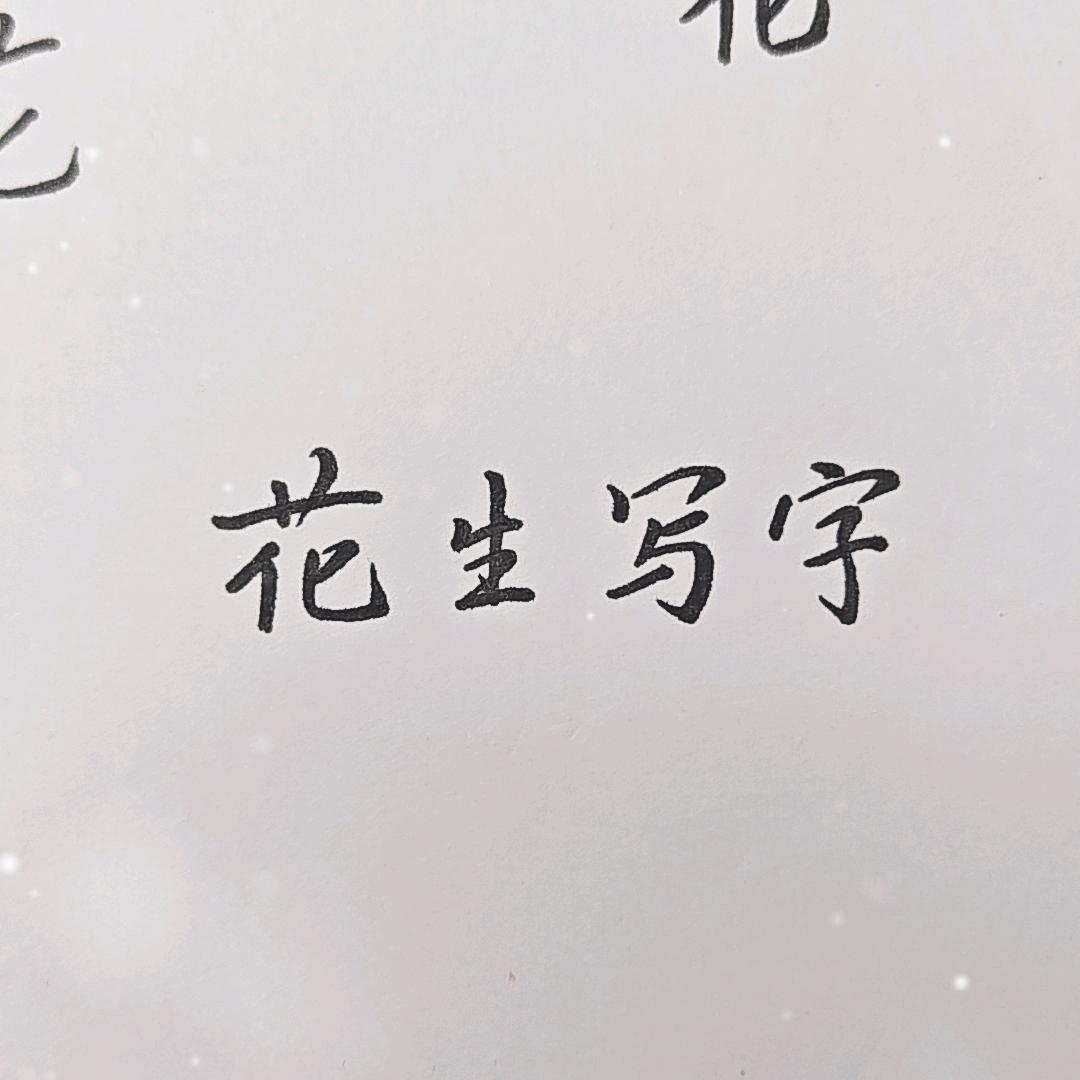 花
花生写字